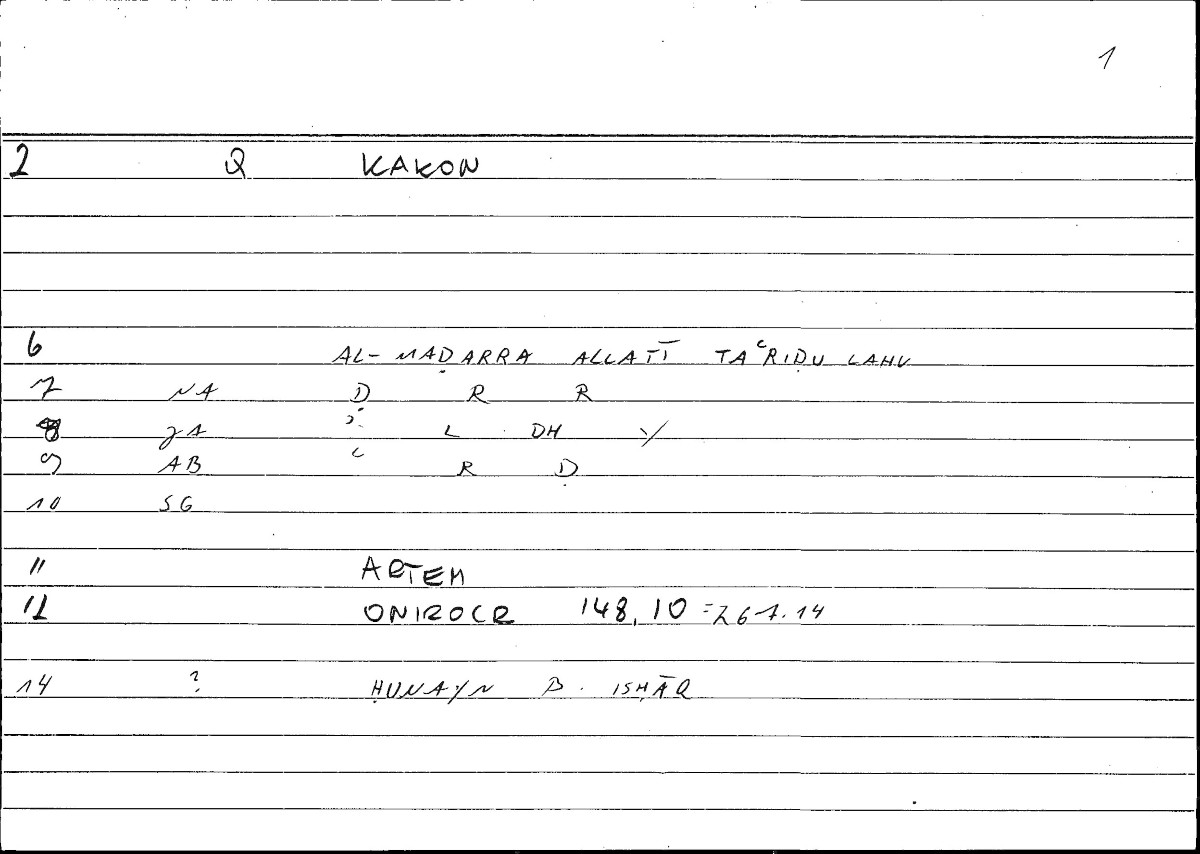 1
2 Q KAKON
6 AL-MAḌARRA ALLATĪ TAʿRIḌU LAHU
7 NA Ḍ R R
8 JA L DH Y
9 AB ʿ R Ḍ
10 SG
11 ARTEM
12 ONIROCR 148,10 = 267.14
14 ? ḤUNAYN B. ISḤĀQ